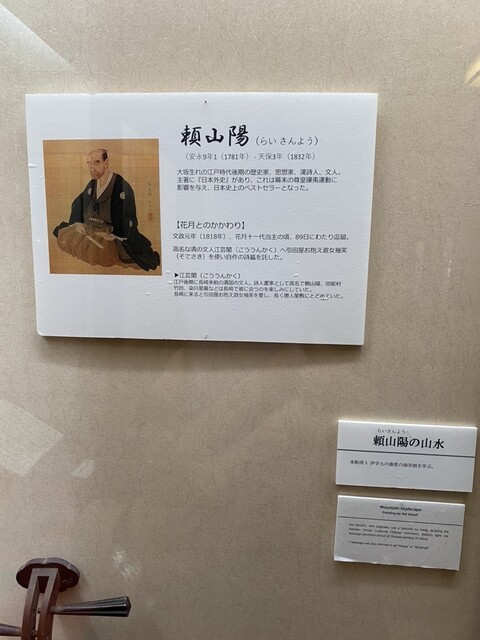 頼山陽（らい さんよう）
（安永9年1（1781年）- 天保3年（1832年）
大坂生れの江戸時代後期の歴史家、思想家、漢詩人、文人。
主著に『日本外史』があり、これは幕末の尊皇攘夷運動に
影響を与え、日本史上のベストセラーとなった。
【花月とのかかわり】
文政元年（1818年）、花月十一代当主の頃、89日にわたり逗留。
高名な清の文人江芸閣（こううんかく）へ引田屋お抱え遊女袖笑
（そでさき）を使い自作の詩篇を託した。
▶江芸閣（こううんかく）
江戸後期に長崎来舶の清国の文人。詩人書家として高名で頼山陽、田能村
竹田、梁川星巌などは長崎で彼に会うのを楽しみにしていた。
長崎に来ると引田屋お抱え遊女袖笑を愛し、長く唐人屋敷にとどめていた。
らいさんよう
頼山陽の山水
来舶清人 伊孚九の
を学ぶ。
Mountain skydscape
Painting by Rai Sanyō